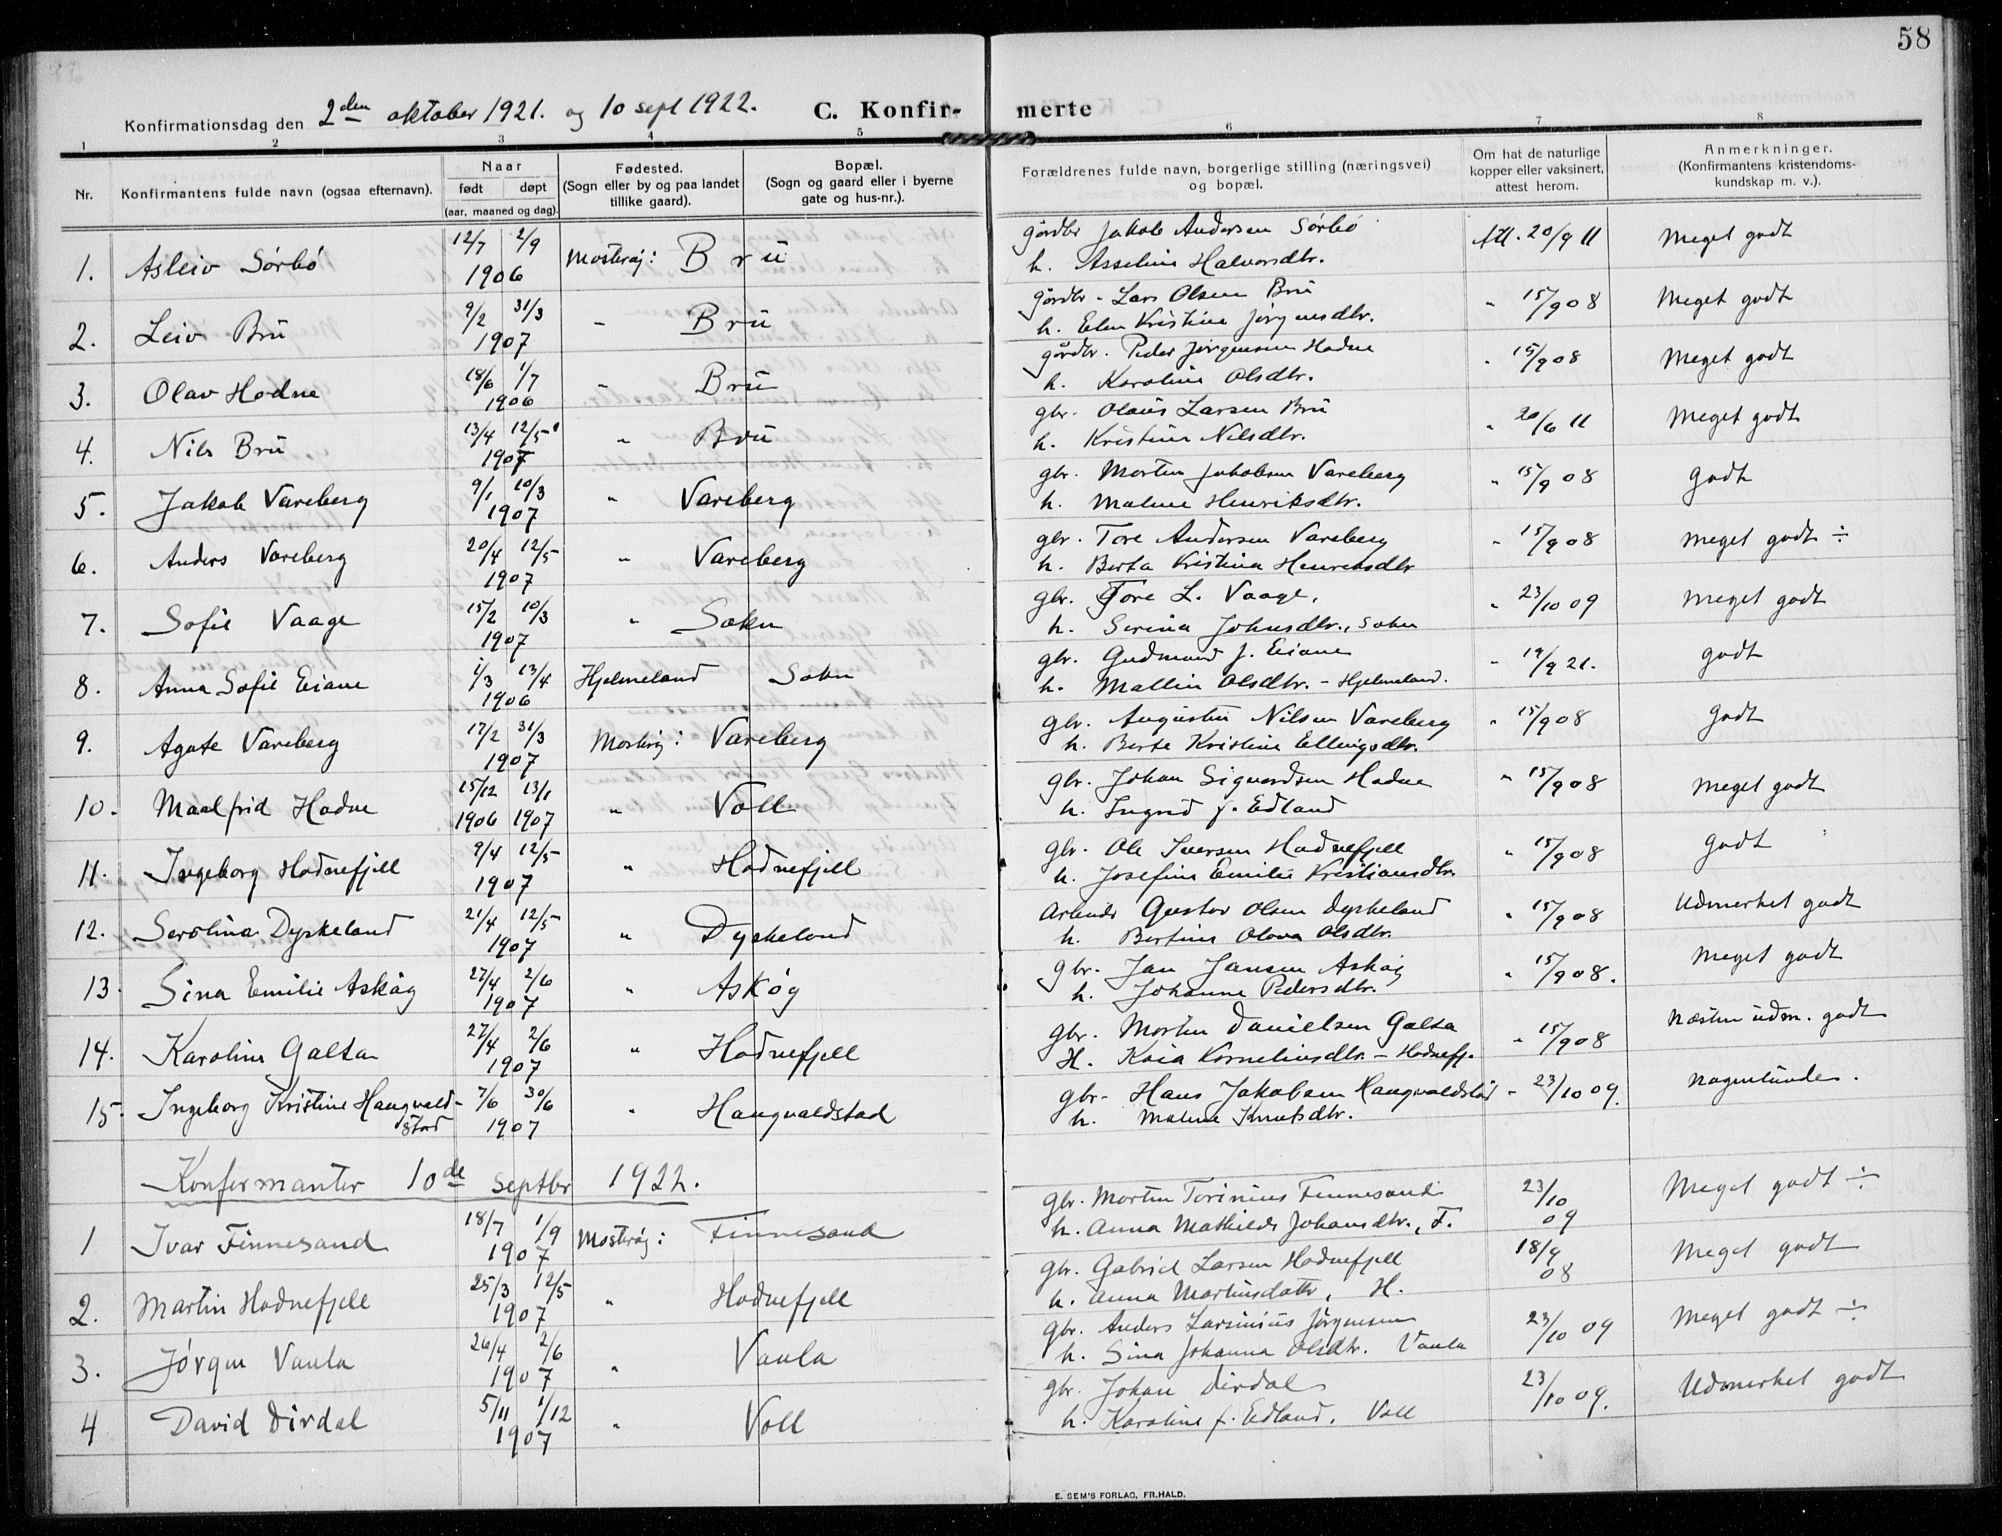 58
Konfirmationsdag den 2den oktober 1921. og 10 sept 1922. C. Konfir- merte
1 2 3 4 5 6 7 8
Nr. Konfirmantens fulde navn (ogsaa efternavn). Naar født døpt (aar, maaned og dag). Fødested. (Sogn eller by og paa landet tillike gaard). Bopæl. (Sogn og gaard eller i byerne gate og hus-nr.). Forældrenes fulde navn, borgerlige stilling (næringsvei) og bopæl. Om hat de naturlige kopper eller vaksinert, attest herom. Anmerkninger. (Konfirmantens kristendoms- kundskap m. v.).
1. Asleiv Sørbø 12/7 2/9 1906 Mosterøy: Bru gårdbr Jakob Andersen Sørbø Att. 20/9 11 Meget godt
h. Asseline Halvorsdtr.
2. Leiv Bru 9/2 31/3 1907 " Bru gårdbr. Lars Olsen Bru " 15/9 08 Meget godt
h. Elen Kristine Jørgensdtr.
3. Olav Hodne 18/6 1/7 1906 " Bru gårdbr. Peder Jørgensen Hodne " 15/9 08 Meget godt
h. Karoline Olsdtr.
4. Nils Bru 13/4 12/5 1907 " Bru gbr. Olaus Larsen Bru " 20/6 11 Meget godt
h. Kristine Nilsdtr.
5. Jakob Vareberg 9/1 10/3 1907 " Vareberg gbr. Morten Jakobsen Vareberg " 15/9 08 godt
h. Malene Henriksdtr.
6. Anders Vareberg 20/4 12/5 1907 " Vareberg gbr. Tore Andersen Vareberg " 15/9 08 Meget godt ÷
h. Berta Kristina Henriksdtr
7. Sofie Vaage 15/2 10/3 1907 " Sokn gbr. Tore L. Vaage, " 23/10 09 Meget godt
h. Serina Johnsdtr., Sokn
8. Anna Sofie Eiane 1/3 13/4 1906 Hjelmeland Sokn gbr. Gudmund J. Eiane " 19/9 21. godt
h. Mallin Olsdtr. - Hjelmeland.
9. Agate Vareberg 17/2 31/3 1907 Mosterøy: Vareberg gbr. Augustin Nilsen Vareberg " 15/9 08 godt
h. Berte Kristine Ellingsdtr.
10. Maalfrid Hodne 15/12 1906 13/1 1907 " Voll gbr. Johan Sigvardsen Hodne " 15/9 08 Meget godt
h. Ingrid f. Edland
11. Ingeborg Hodnefjell 9/4 12/5 1907 " Hodnefjell gbr. Ole Iversen Hodnefjell " 15/9 08 godt
h. Josefine Emilie Kristiansdtr.
12. Serolina Dyskeland 21/4 12/5 1907 " Dyskeland Arbeider Gustav Olsen Dyskeland " 15/9 08 Udmerket godt
h. Bertine Olava Olsdtr.
13. Sina Emilie Askøy 27/4 2/6 1907 " Askøy gbr. Jan Jansen Askøy " 15/9 08. Meget godt
h. Johanne Pedersdtr.
14. Karoline Galta 27/4 2/6 1907 " Hodnefjell gbr. Morten Danielsen Galta " 15/9 08 Næsten udm. godt
H. Kaia Korneliusdtr. - Hodnefj.
15. Ingeborg Kristine Haugvald- 7/6 30/6 1907 " Haugvaldstad gbr. Hans Jakobsen Haugvaldstad " 23/10 09. nogenlunde.
stad h. Malene Knutsdtr.
Konfermanter 10de septbr 1922.
1 Ivar Finnesand 18/7 1/9 1907 Mosterøy: Finnesand gbr. Morten Torinius Finnesand 23/10 09 Meget godt ÷
h. Anna Mathilde Johansdtr., F.
2. Martin Hodnefjell 25/3 12/5 1907 " Hodnefjell gbr. Gabriel Larsen Hodnefjell 18/9 08 Meget godt
h. Anna Martinsdatr, H.
3. Jørgen Vaula 26/4 2/6 1907 " Vaula gbr. Anders Larsinius Jørgensen 23/10 09 Meget godt ÷
h. Sina Johanna Olsdtr. Vaula
4 David Dirdal 5/11 1/12 1907 " Voll gbr. Johan Dirdal 23/10 09. Udmerket godt
h. Karoline f. Edland, Voll
E. SEM'S FORLAG, FR.HALD.